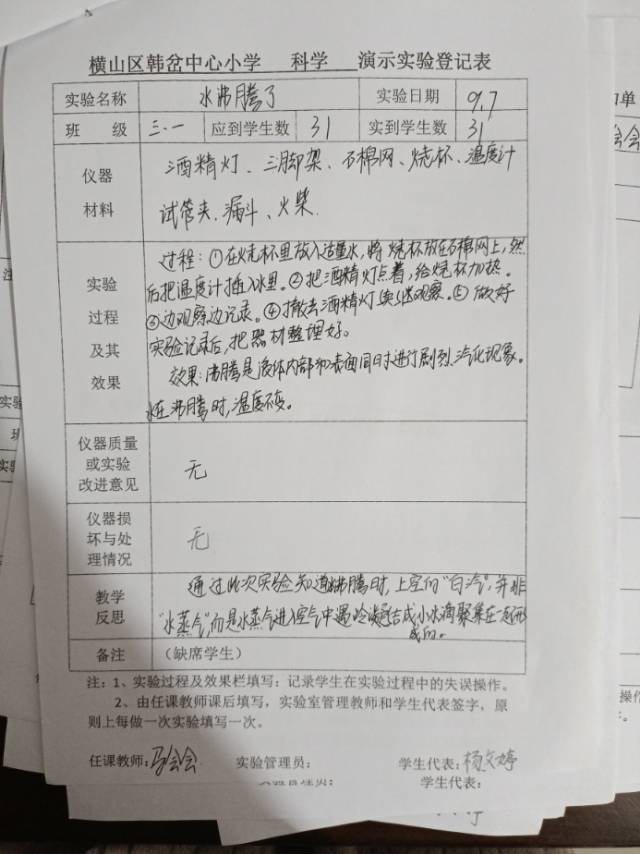 横山区韩岔中心小学 科学 演示实验登记表
实验名称 水沸腾了 实验日期 9.7
班 级 三.一 应到学生数 31 实到学生数 31
仪器材料 酒精灯、三脚架、石棉网、烧杯、温度计
试管夹、漏斗、火柴.
实验过程及其效果 过程:①在烧杯里放入适量水,将烧杯放在石棉网上,然
后把温度计插入水里。②把酒精灯点着,给烧杯加热。
③边观察边记录。④撤去酒精灯继续观察。⑤做好
实验记录后,把器材整理好。
效果:沸腾是液体内部和表面同时进行剧烈汽化现象。
水在沸腾时,温度不变。
仪器质量或实验改进意见 无
仪器损坏与处理情况 无
教学反思 通过此次实验知道沸腾时,上空的“白汽”,并非
“水蒸气”而是水蒸气进入空气中遇冷凝结成小水滴聚集在一起形
成的。
备注 (缺席学生)
注:1、实验过程及效果栏填写:记录学生在实验过程中的失误操作。
2、由任课教师课后填写,实验室管理教师和学生代表签字,原
则上每做一次实验填写一次。
任课教师:马会会 实验管理员: 学生代表:杨文婷
学生代表: